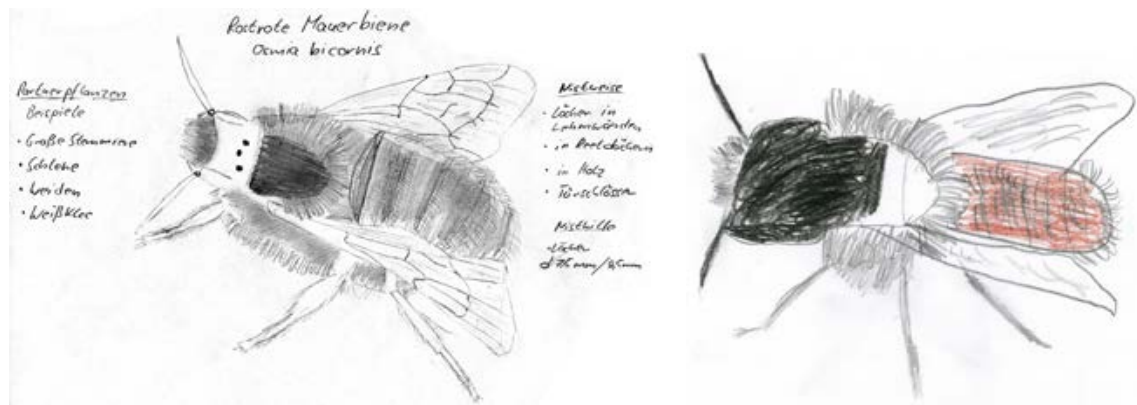 Rostrote Mauerbiene
Osmia bicornis
Partnerpflanzen
Beispiele
• Große Sternmiere
• Schlehe
• Weiden
• Weißklee
Nistweise
• Löcher in
Lehmwänden
• in Reetdächern
• in Holz
• Türschlösser
Nisthilfe